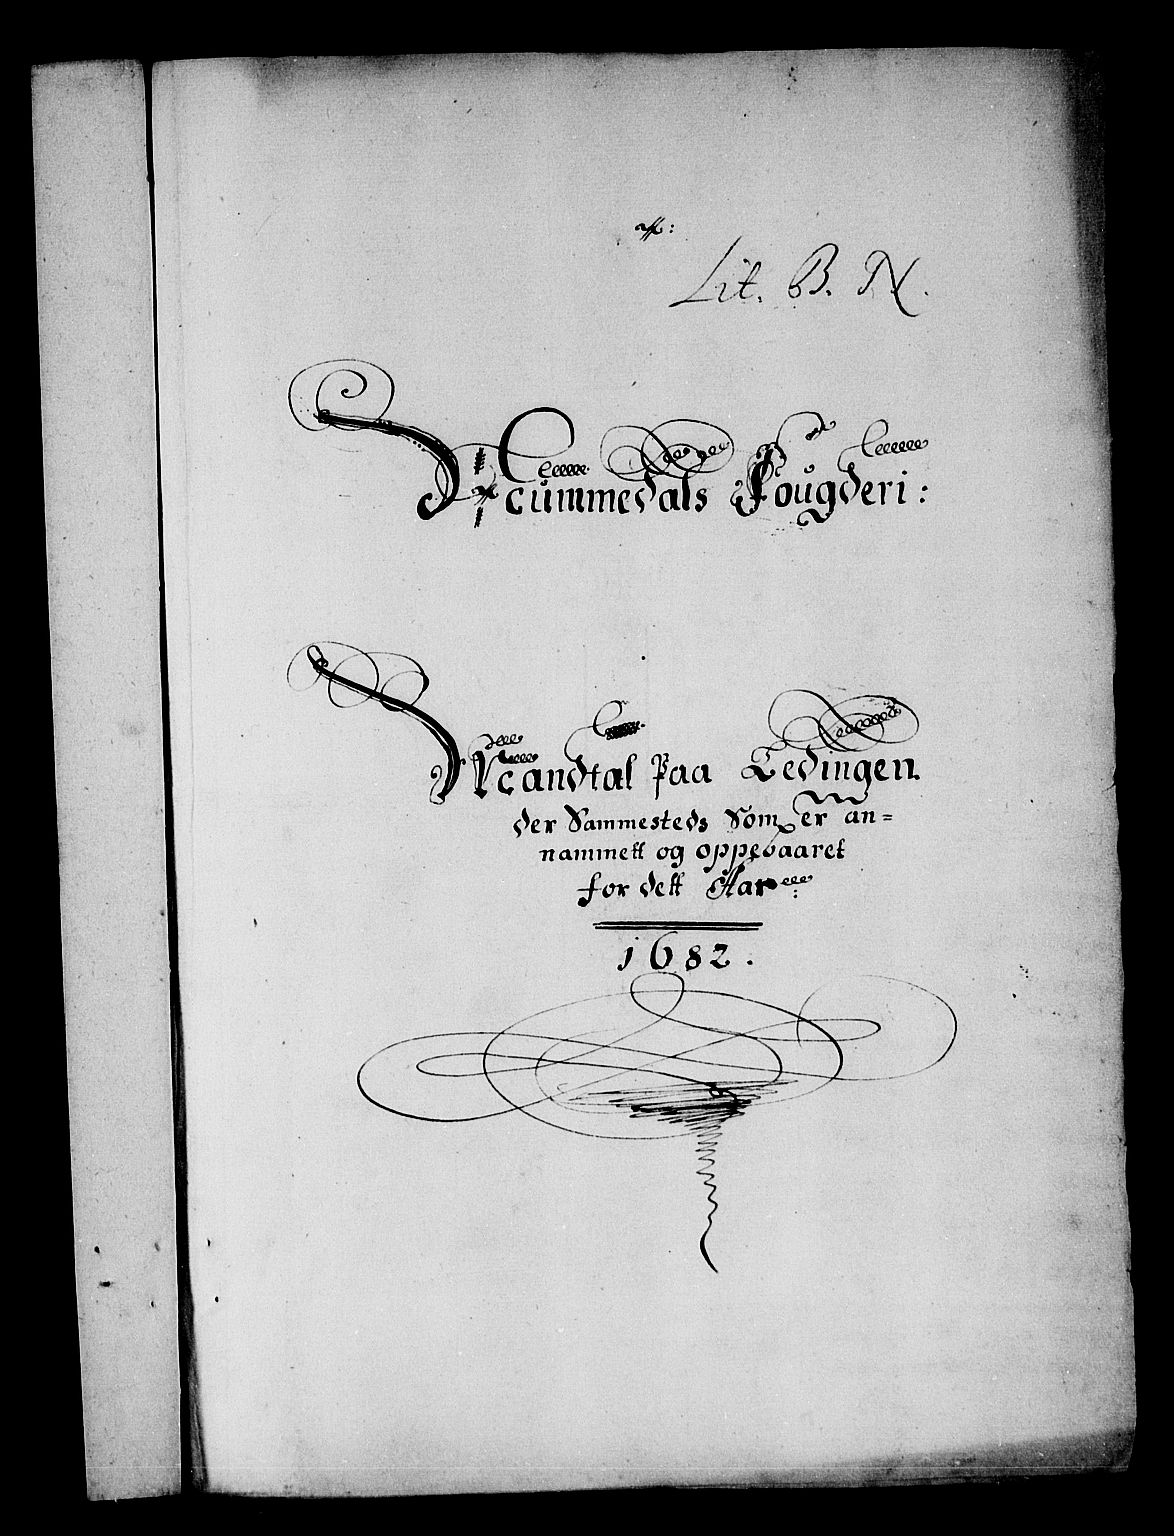 aff:
Lit. B. N.
Nummedals Fougderi:
Mandtal paa Ledingen
der Sammesteds Som er an=
nammett og oppebaaret
for dett Aar:
1682.